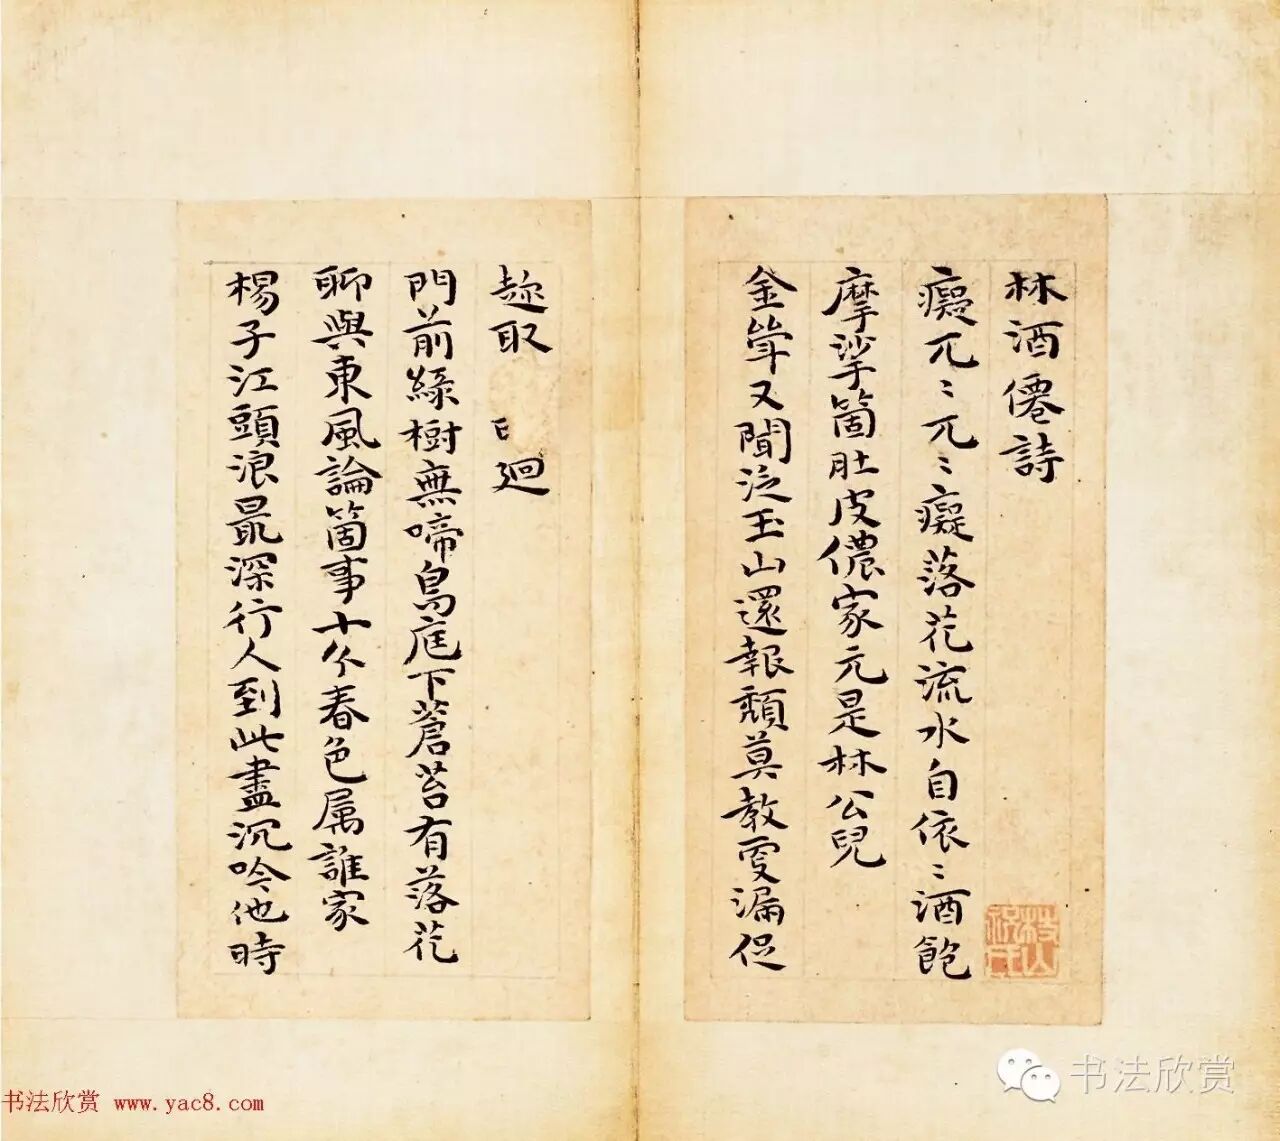 林酒僊詩
癡兀〻兀〻癡落花流水自依〻酒飽
摩挲箇肚皮儂家元是林公兒
金斝又聞泛玉山還報頹莫教更漏促
趂取 迴
門前綠樹無啼鳥庭下蒼苔有落花
聊與東風論箇事十分春色属誰家
楊子江頭浪最深行人到此盡沉吟他時
枝山
祝氏
书法欣赏
书法欣赏 www.yac8.com